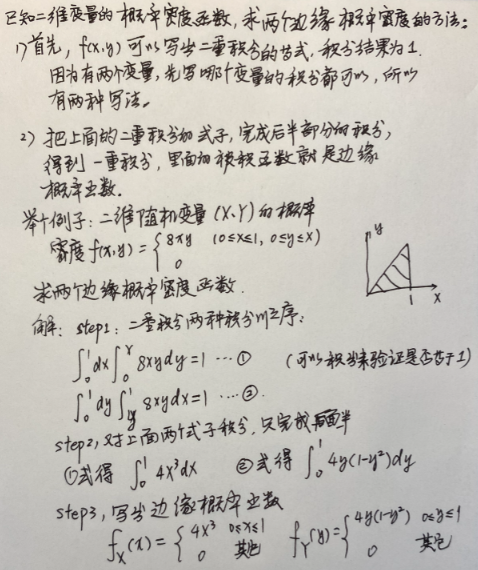 已知二维变量的概率密度函数，求两个边缘概率密度的方法：
1) 首先，f(x,y) 可以写出二重积分的式子，积分结果为1.
因为有两个变量，先写哪个变量的积分都可以，所以
有两种写法。
2) 把上面的二重积分的式子，完成后半部分的积分，
得到一重积分，里面的被积函数就是边缘
概率函数.
举个例子：二维随机变量 (X、Y) 的概率
密度 f(x,y) = { 8xy (0≤x≤1, 0≤y≤x)
0
y
1
x
求两个边缘概率密度函数.
解: step1: 二重积分两种积分顺序:
∫₀¹dx∫₀ˣ 8xydy=1 …① (可以积出来验证是否等于1)
∫₀¹dy∫ᵧ¹ 8xydx=1 …②.
step2, 对上面两个式子积分, 只完成后面半
①式得 ∫₀¹ 4x³dx ②式得 ∫₀¹ 4y(1-y²)dy
step3, 写出边缘概率函数
f_X(x) = { 4x³ 0≤x≤1 f_Y(y) = { 4y(1-y²) 0≤y≤1
0 其它 0 其它